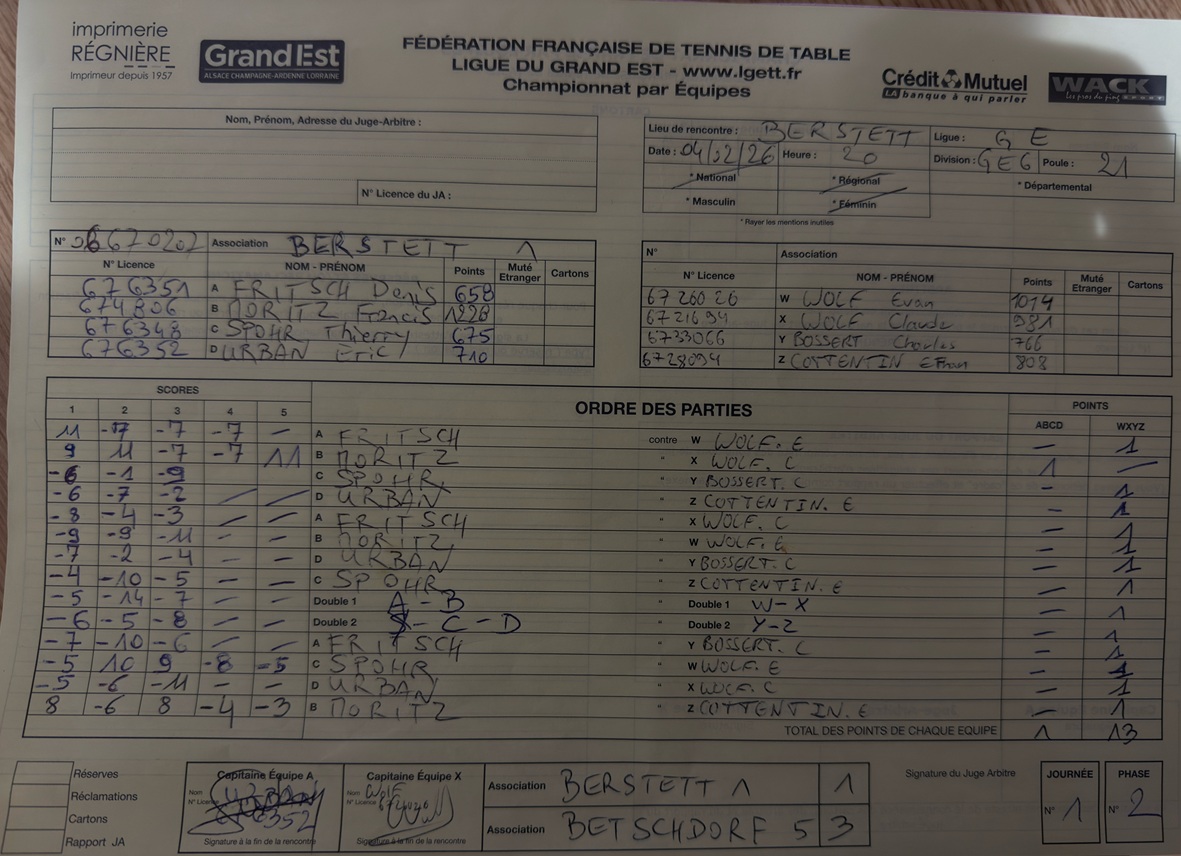 imprimerie
RÉGNIÈRE
Imprimeur depuis 1957
GrandEst
ALSACE CHAMPAGNE-ARDENNE LORRAINE
FÉDÉRATION FRANÇAISE DE TENNIS DE TABLE
LIGUE DU GRAND EST - www.lgett.fr
Championnat par Équipes
Crédit Mutuel
LA banque à qui parler
WACK
Les pros du ping
Nom, Prénom, Adresse du Juge-Arbitre :
N° Licence du JA :
Lieu de rencontre : BERSTETT Ligue : G E
Date : 04/02/26 Heure : 20 Division : GE6 Poule : 21
* National * Régional * Départemental
* Masculin * Féminin
* Rayer les mentions inutiles
N° 06670207 Association BERSTETT 1
N° Licence NOM - PRÉNOM Points Muté Etranger Cartons
676351 A FRITSCH Denis 658
674806 B MORITZ Francis 1228
676348 C SPOHR Thierry 675
676352 D URBAN Eric 710
N° Association
N° Licence NOM - PRÉNOM Points Muté Etranger Cartons
67 260 26 W WOLF Evan 1014
67 216 94 X WOLF Claude 981
6733066 Y BOSSERT Charles 766
6728094 Z COTTENTIN 808
SCORES ORDRE DES PARTIES POINTS
1 2 3 4 5 ABCD WXYZ
11 -7 -7 -7 — A FRITSCH contre W WOLF. E — 1
9 11 -7 -7 11 B MORITZ " X WOLF. C 1 —
-6 -1 -9 C SPOHR " Y BOSSERT. C — 1
-6 -7 -2 — — D URBAN " Z COTTENTIN. E — 1
-8 -4 -3 — — A FRITSCH " X WOLF. C — 1
-9 -9 -11 — — B MORITZ " W WOLF. E — 1
-7 -2 -4 — — D URBAN " Y BOSSERT. C — 1
-4 -10 -5 — — C SPOHR " Z COTTENTIN. E — 1
-5 -14 -7 — — Double 1 A - B " Double 1 W-X — 1
-6 -5 -8 — — Double 2 C - D " Double 2 Y-Z — 1
-7 -10 -6 — — A FRITSCH " Y BOSSERT. C — 1
-5 10 9 -8 -5 C SPOHR " W WOLF. E — 1
-5 -6 -11 — — D URBAN " X WOLF. C — 1
8 -6 8 -4 -3 B MORITZ " Z COTTENTIN. E — 1
TOTAL DES POINTS DE CHAQUE EQUIPE 1 13
Réserves
Réclamations
Cartons
Rapport JA
Capitaine Équipe A
Nom URBAN
N° Licence 6352
Signature à la fin de la rencontre
Capitaine Équipe X
Nom Wolf
N° Licence
Signature à la fin de la rencontre
Association BERSTETT 1 1
Association BETSCHDORF 5 3
Signature du Juge Arbitre
JOURNÉE
N° 1
PHASE
N° 2